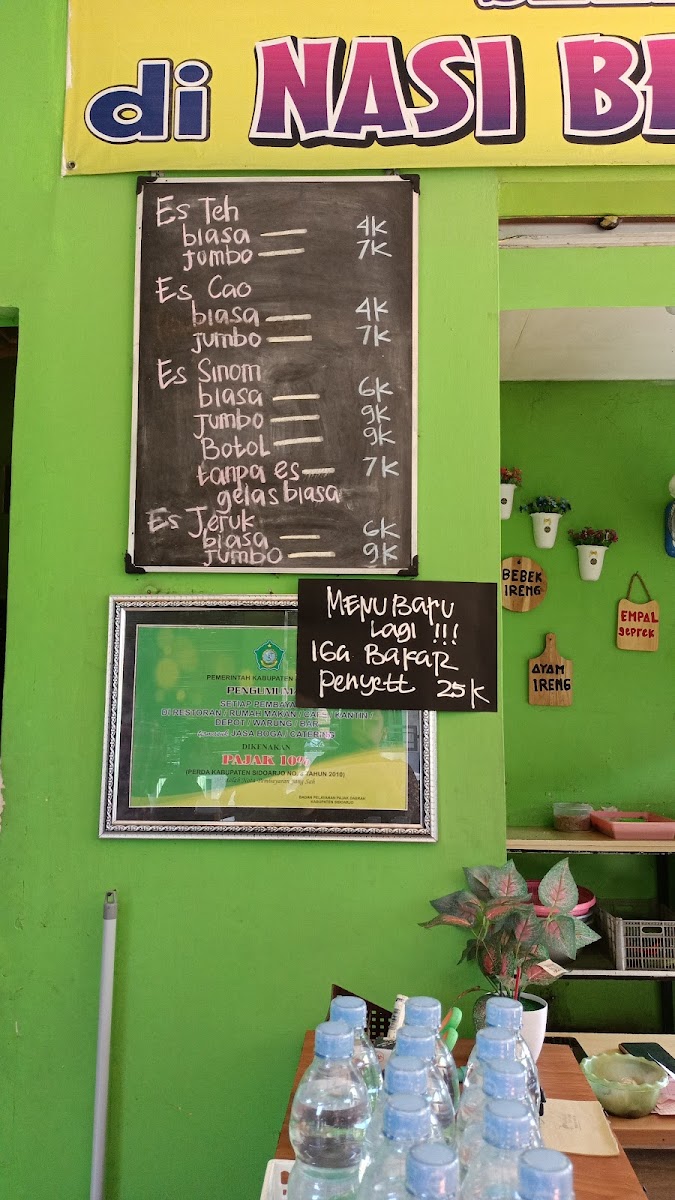 di NASI
Es Teh
biasa 4K
jumbo 7K
Es Cao
biasa 4K
jumbo 7K
Es Sinom
biasa 6K
jumbo 9K
Botol 9K
tanpa es 7K
gelas biasa
Es Jeruk
biasa 6K
jumbo 9K
MENU BARU
LAGI !!!
IGA BAKAR
PENYETT 25K
BEBEK
IRENG
EMPAL
geprek
AYAM
IRENG
PEMERINTAH KABUPATEN
PENGUMUMA
SETIAP PEMBAYA
DI RESTORAN / RUMAH MAKAN / CAFE / KANTIN
DEPOT / WARUNG / BAR
JASA BOGA / CATERING
DIKENAKAN
PAJAK 10%
(PERDA KABUPATEN SIDOARJO NO. TAHUN 2010)
BADAN PELAYANAN PAJAK DAERAH
KABUPATEN SIDOARJO